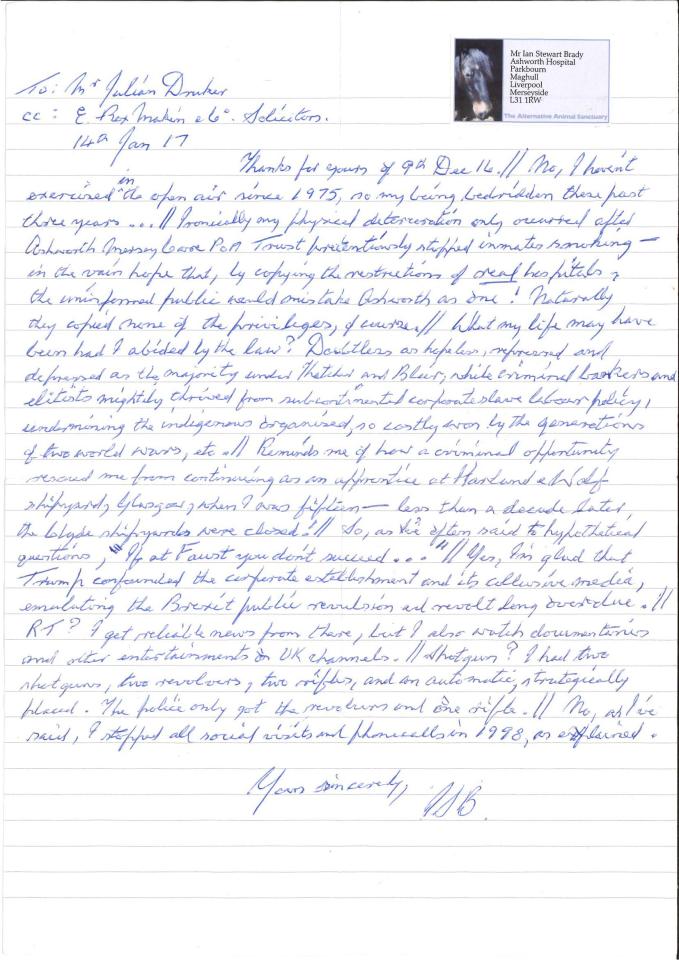 Mr Ian Stewart Brady
Ashworth Hospital
Parkbourn
Maghull
Liverpool
Merseyside
L31 1RW
The Alternative Animal Sanctuary
To: Mr Julian Druker
cc: E. Rex Makin & Co. Solicitors.
14th Jan 17
Thanks for yours of 9th Dec 16. // No, I haven't
exercised in the open air since 1975, so my being bedridden these past
three years ... // Ironically my physical deterioration only occurred after
Ashworth Mersey Care POA Trust pretentiously stopped inmates smoking —
in the vain hope that, by copying the restrictions of real hospitals,
the uninformed public would mistake Ashworth as one! Naturally
they copied none of the privileges, of course. // What my life may have
been had I abided by the law? Doubtless as hopeless, repressed and
depressed as the majority under Thatcher and Blair, while criminal bankers and
elitists mightily thrived from subcontinental corporate slave labour policy,
undermining the indigenous organised, so costly won by the generations
of two world wars, etc. // Reminds me of how a criminal opportunity
rescued me from continuing as an apprentice at Harland & Wolf
shipyard, Glasgow, when I was fifteen — less than a decade later,
the Clyde shipyards were closed! // So, as I've often said to hypothetical
questions, "If at Faust you don't succeed ..." // Yes, I'm glad that
Trump confounded the corporate establishment and its collusive media,
emulating the Brexit public revulsion and revolt long overdue. //
RT? I get reliable news from there, but I also watch documentaries
and other entertainments on UK channels. // Shotgun? I had two
shotguns, two revolvers, two rifles, and an automatic, strategically
placed. The police only got the revolvers and one rifle. // No, as I've
said, I stopped all social visits and phonecalls in 1998, as explained.
Yours sincerely,
ISB.